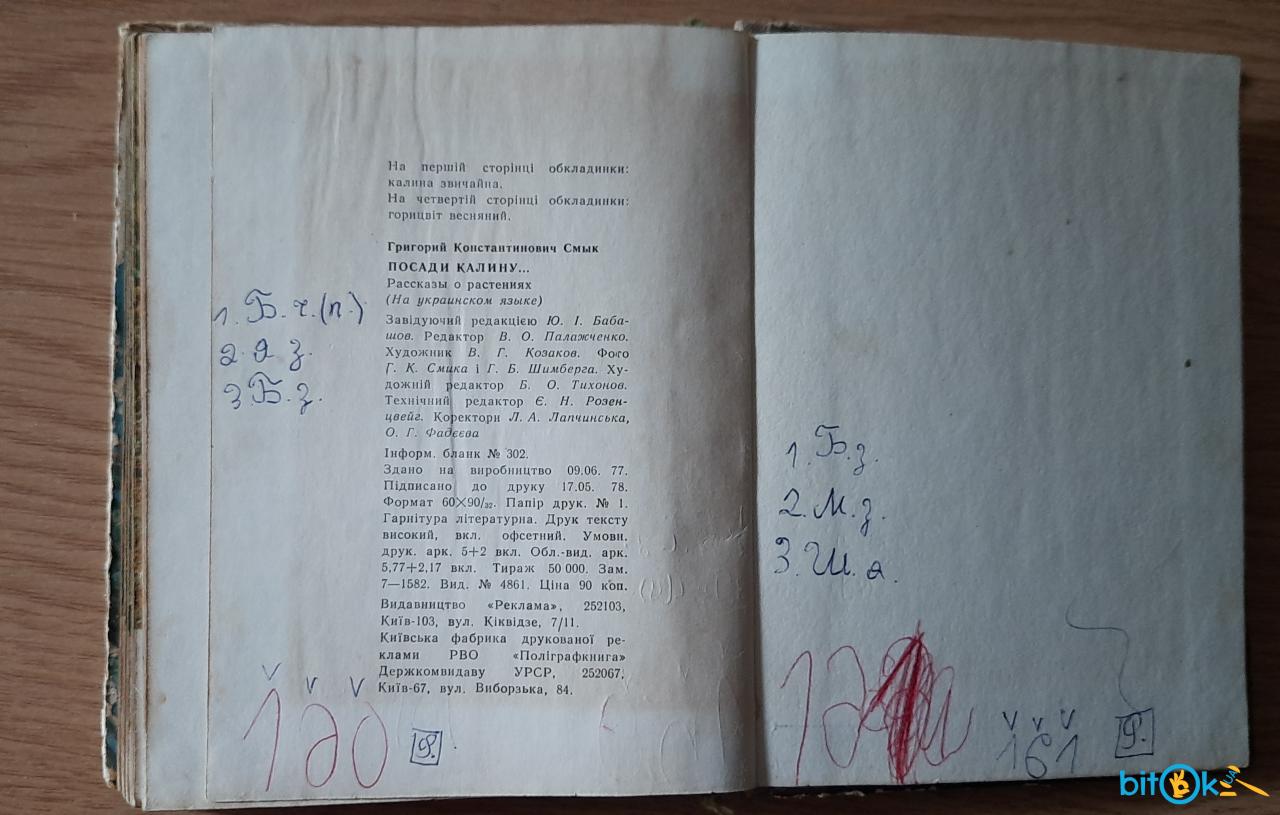 На першій сторінці обкладинки:
калина звичайна.
На четвертій сторінці обкладинки:
горицвіт весняний.
Григорий Константинович Смык
ПОСАДИ КАЛИНУ...
Рассказы о растениях
(На украинском языке)
Завідуючий редакцією Ю. І. Баба-
шов. Редактор В. О. Палажченко.
Художник В. Г. Козаков. Фото
Г. К. Смика і Г. Б. Шимберга. Ху-
дожній редактор Б. О. Тихонов.
Технічний редактор Є. Н. Розен-
цвейг. Коректори Л. А. Лапчинська,
О. Г. Фадєєва
Інформ. бланк № 302.
Здано на виробництво 09.06. 77.
Підписано до друку 17.05. 78.
Формат 60×90/32. Папір друк. № 1.
Гарнітура літературна. Друк тексту
високий, вкл. офсетний. Умовн.
друк. арк. 5+2 вкл. Обл.-вид. арк.
5,77+2,17 вкл. Тираж 50 000. Зам.
7—1582. Вид. № 4861. Ціна 90 коп.
Видавництво «Реклама», 252103,
Київ-103, вул. Кіквідзе, 7/11.
Київська фабрика друкованої ре-
клами РВО «Поліграфкнига»
Держкомвидаву УРСР, 252067,
Київ-67, вул. Виборзька, 84.
1. Б. ч. (п.)
2. Я з.
3. Б. з.
1. Б. з.
2. М. з.
3. Ш. а.
161
bitOk.UA